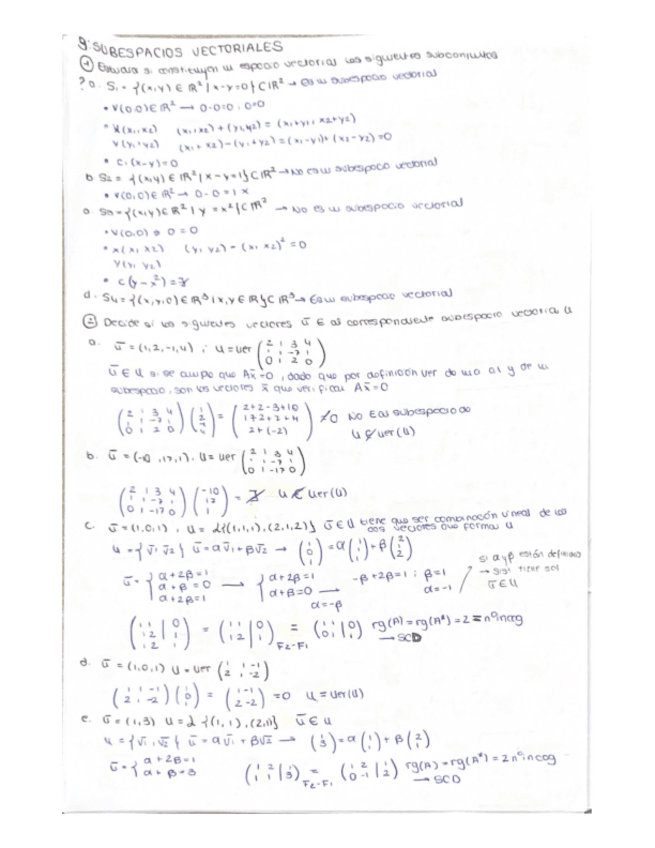 9: SUBESPACIOS VECTORIALES
① Estudia si constituyen un espacio vectorial los siguientes subconjuntos
? a. S₁ = {(x,y) ∈ ℝ² | x-y=0} C ℝ² → Es un subespacio vectorial
• V(0,0) ∈ ℝ² → 0-0=0, 0=0
• X(x₁,x₂) (x₁,x₂) + (y₁,y₂) = (x₁+y₁, x₂+y₂)
Y(y₁,y₂) (x₁+x₂)-(y₁+y₂) = (x₁-y₁)+(x₂-y₂)=0
• C·(x-y)=0
b S₂ = {(x,y) ∈ ℝ² | x-y=1} C ℝ² → No es un subespacio vectorial
• V(0,0) ∈ ℝ² → 0-0=1 x
S₃={(x,y) ∈ ℝ² | y=x²} C ℝ² → No es un subespacio vectorial
• V(0,0) 0=0
• X(x₁ x₂) (y₁ y₂) - (x₁ x₂)² = 0
Y(y₁ y₂)
• C(y-x²)=
d. S₄={(x,y,0) ∈ ℝ³ | x,y ∈ ℝ} C ℝ³ → Es un subespacio vectorial
② Decide si los siguientes vectores ū ∈ al correspondiente subespacio vectorial U
a. ū = (1,2,-1,4), U = ver (2 1 3 4 / 1 1 -7 1 / 0 1 2 0)
ū ∈ U si se cumple que Ax̄=0, dado que por definición ver de un
subespacio, son los vectores x̄ que verifican Ax̄=0
(2 1 3 4 / 1 1 -7 1 / 0 1 2 0) (1 / 2 / / 4) = (2+2-3+16 / 1+2+7+4 / 2+(-2)) ≠0 No ∈ al subespacio
U ver(U)
b. ū = (-10, 17, 1). U = ver (2 1 3 4 / 1 1 -7 1 / 0 1 -17 0)
(2 1 3 4 / 1 1 -7 1 / 0 1 -17 0) (-10 / 17 / 1) = U ver(U)
c. ū = (1,0,1), U = L{(1,1,1),(2,1,2)} ū ∈ U tiene que ser combinación lineal de los
dos vectores que forman U
U = {v̄₁ v̄₂} ū = αv̄₁ + βv̄₂ → (1 / 0 / 1) = α(1 / 1 / 1) + β(2 / 1 / 2)
si α y β están definidos
→ S.I tiene sol
ū ∈ U
ū = {α+2β=1 / α+β=0 / α+2β=1 → {α+2β=1 / α+β=0 → -β+2β=1; β=1
α=-β α=-1
(1 2 | 1 / 1 1 | 0 / 1 2 | 1) rg(A) = rg(A*) = 2 = nº incog
F₂-F₁ → SCD
d. ū = (1,0,1) U = ver (1 1 -1 / 2 1 -2)
(1 1 -1 / 2 1 -2) (1 / 0 / 1) = (1-1 / 2-2) =0 U = ver(U)
e. ū = (1,3) U = L{(1,1),(2,1)} ū ∈ U
U = {v̄₁, v̄₂} ū = αv̄₁ + βv̄₂ → (1 / 3) = α(1 / 1) + β(2 / 1)
ū = {α+2β=1 / α+β=3 (1 2 | 1 / 1 1 | 3) = (1 2 | 1 / 0 -1 | 2) rg(A) = rg(A*) = 2 nº incog
F₂-F₁ → SCD